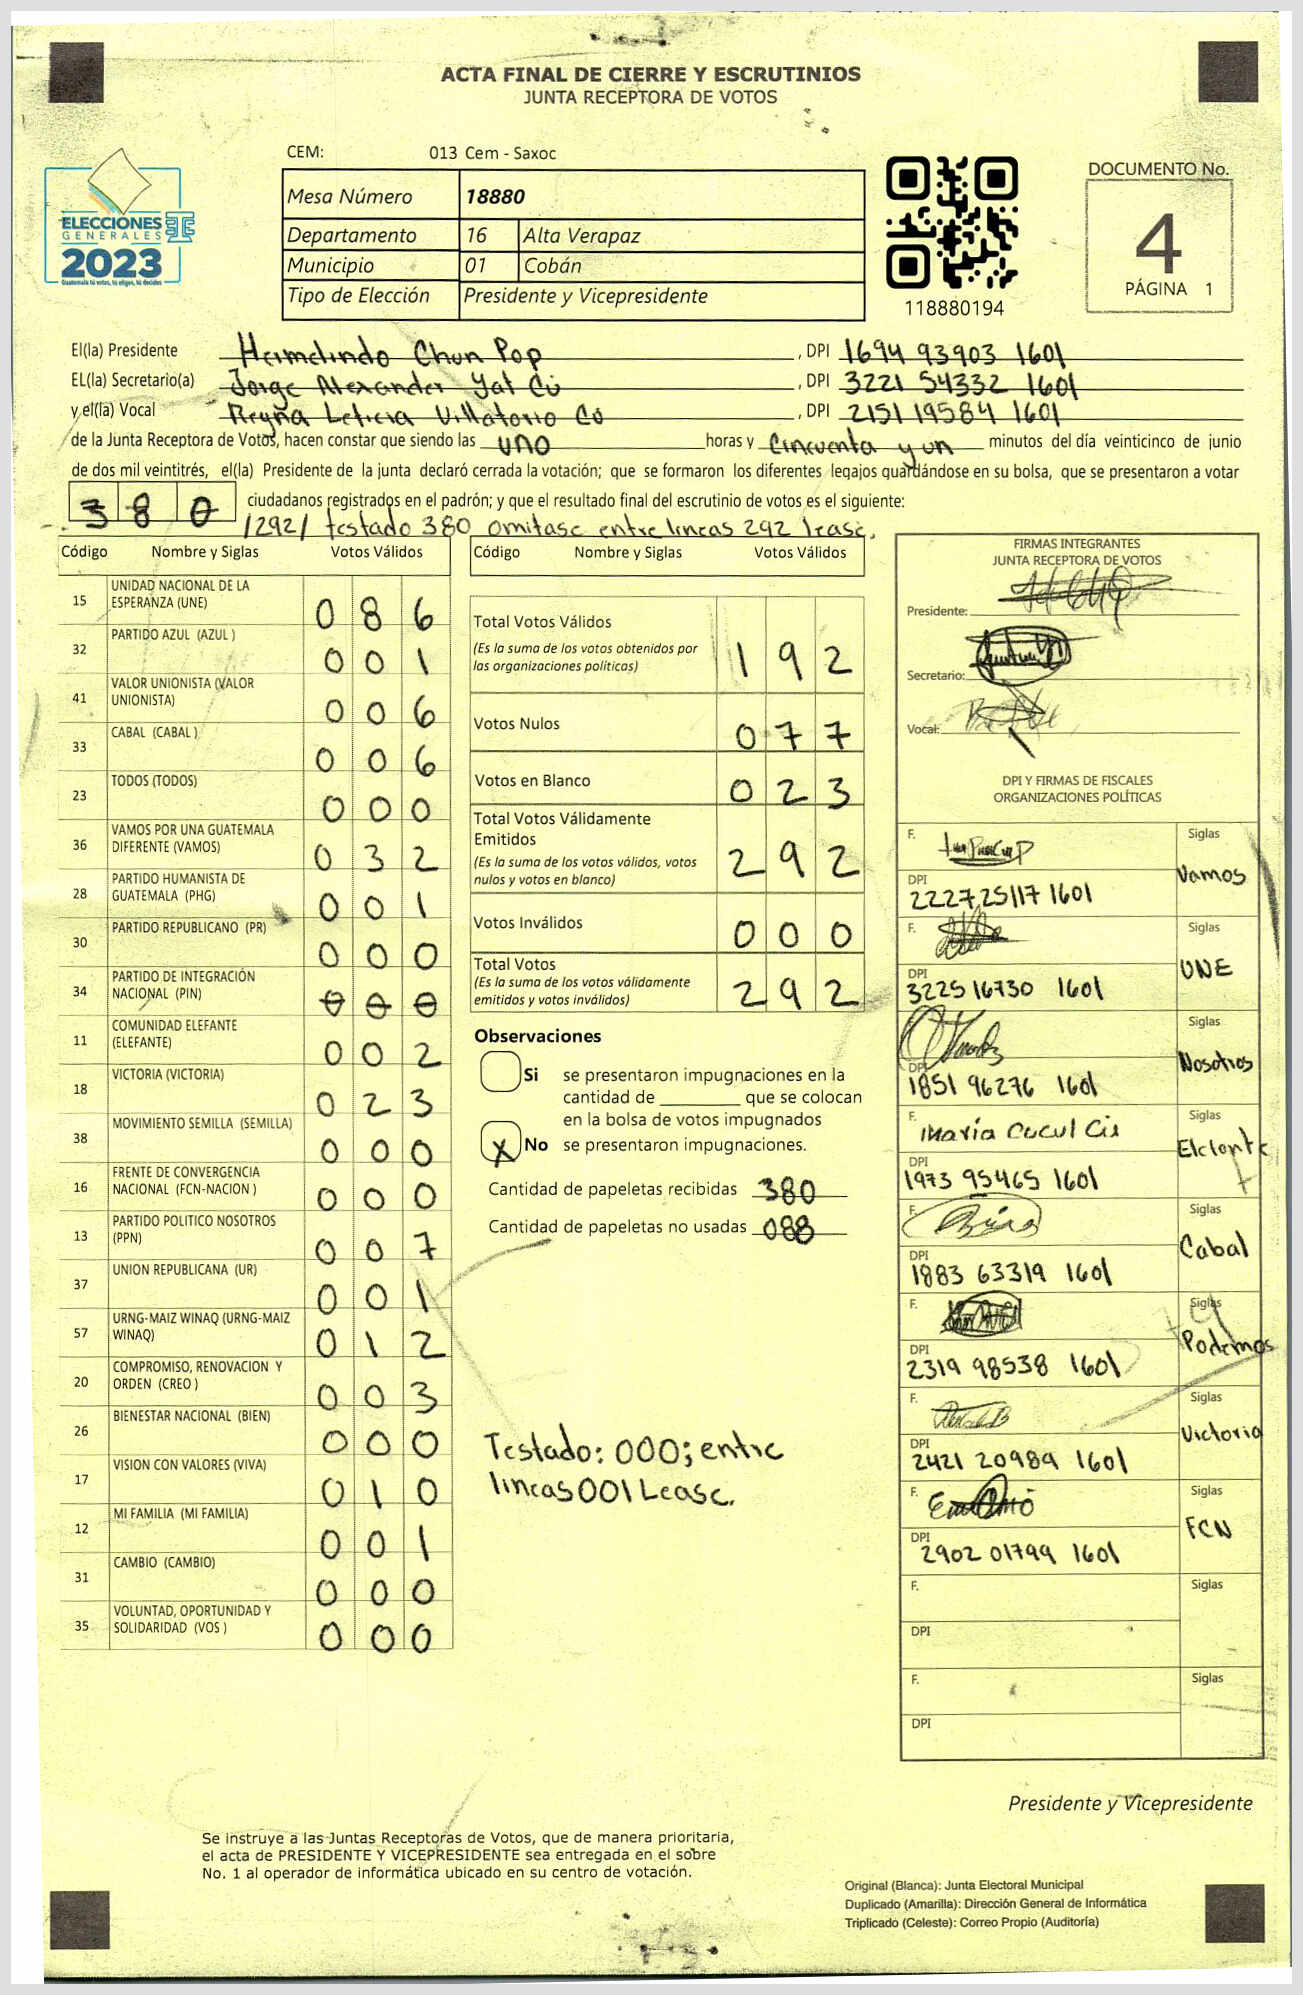 ACTA FINAL DE CIERRE Y ESCRUTINIOS
JUNTA RECEPTORA DE VOTOS
CEM: 013 Cem - Saxoc
ELECCIONES
GENERALES
2023
Guatemala tú votas, tú eliges, tú decides
Mesa Número 18880
Departamento 16 Alta Verapaz
Municipio 01 Cobán
Tipo de Elección Presidente y Vicepresidente
118880194
DOCUMENTO No.
4
PÁGINA 1
El(la) Presidente Hermelindo Chun Pop , DPI 1694 93903 1601
EL(la) Secretario(a) Jorge Alexander Yat Cú , DPI 3221 54332 1601
y el(la) Vocal Reyna Leticia Villatorio Có , DPI 2151 19584 1601
de la Junta Receptora de Votos, hacen constar que siendo las uno horas y cincuenta y un minutos del día veinticinco de junio
de dos mil veintitrés, el(la) Presidente de la junta declaró cerrada la votación; que se formaron los diferentes legajos guardándose en su bolsa, que se presentaron a votar
380 ciudadanos registrados en el padrón; y que el resultado final del escrutinio de votos es el siguiente:
/292/ testado 380 omitase entre lineas 292 lease.
Código Nombre y Siglas Votos Válidos
15 UNIDAD NACIONAL DE LA ESPERANZA (UNE) 086
32 PARTIDO AZUL (AZUL ) 001
41 VALOR UNIONISTA (VALOR UNIONISTA) 006
33 CABAL (CABAL ) 006
23 TODOS (TODOS) 000
36 VAMOS POR UNA GUATEMALA DIFERENTE (VAMOS) 032
28 PARTIDO HUMANISTA DE GUATEMALA (PHG) 001
30 PARTIDO REPUBLICANO (PR) 000
34 PARTIDO DE INTEGRACIÓN NACIONAL (PIN) 000
11 COMUNIDAD ELEFANTE (ELEFANTE) 002
18 VICTORIA (VICTORIA) 023
38 MOVIMIENTO SEMILLA (SEMILLA) 000
16 FRENTE DE CONVERGENCIA NACIONAL (FCN-NACION ) 000
13 PARTIDO POLITICO NOSOTROS (PPN) 007
37 UNION REPUBLICANA (UR) 001
57 URNG-MAIZ WINAQ (URNG-MAIZ WINAQ) 012
20 COMPROMISO, RENOVACION Y ORDEN (CREO ) 003
26 BIENESTAR NACIONAL (BIEN) 000
17 VISION CON VALORES (VIVA) 010
12 MI FAMILIA (MI FAMILIA) 001
31 CAMBIO (CAMBIO) 000
35 VOLUNTAD, OPORTUNIDAD Y SOLIDARIDAD (VOS ) 000
Código Nombre y Siglas Votos Válidos
Total Votos Válidos 192
(Es la suma de los votos obtenidos por
las organizaciones políticas)
Votos Nulos 077
Votos en Blanco 023
Total Votos Válidamente
Emitidos 292
(Es la suma de los votos válidos, votos
nulos y votos en blanco)
Votos Inválidos 000
Total Votos 292
(Es la suma de los votos válidamente
emitidos y votos inválidos)
Observaciones
Si se presentaron impugnaciones en la
cantidad de ________ que se colocan
en la bolsa de votos impugnados
X No se presentaron impugnaciones.
Cantidad de papeletas recibidas 380
Cantidad de papeletas no usadas 088
Testado: 000; entre
lineas 001 Lease.
FIRMAS INTEGRANTES
JUNTA RECEPTORA DE VOTOS
Presidente:
Secretario:
Vocal:
DPI Y FIRMAS DE FISCALES
ORGANIZACIONES POLÍTICAS
F. Siglas
Vamos
DPI
2227 25117 1601
F. Siglas
UNE
DPI
3225 16730 1601
Siglas
Nosotros
DPI
1851 96276 1601
F. Siglas
Maria Cucul Cis
Elefante
DPI
1973 95465 1601
F. Siglas
Cabal
DPI
1883 63319 1601
F. Siglas
Podemos
DPI
2319 98538 1601
F. Siglas
Victoria
DPI
2421 20989 1601
F. Siglas
FCN
DPI
2902 01799 1601
F. Siglas
DPI
F. Siglas
DPI
Presidente y Vicepresidente
Se instruye a las Juntas Receptoras de Votos, que de manera prioritaria,
el acta de PRESIDENTE Y VICEPRESIDENTE sea entregada en el sobre
No. 1 al operador de informática ubicado en su centro de votación.
Original (Blanca): Junta Electoral Municipal
Duplicado (Amarilla): Dirección General de Informática
Triplicado (Celeste): Correo Propio (Auditoría)